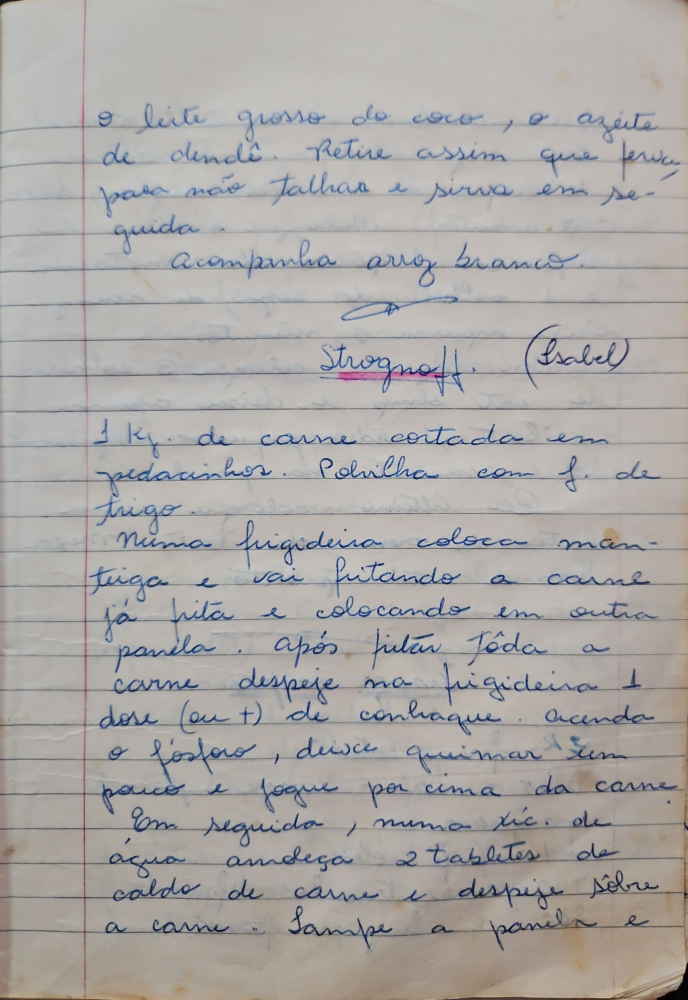 o leite grosso do coco, o azeite
de dendê. Retire assim que ferva,
para não talhar e sirva em se-
guida.
Acompanha arroz branco.
Strognoff. (Isabel)
1 Kg. de carne cortada em
pedacinhos. Polvilha com f. de
trigo.
Numa frigideira coloca man-
teiga e vai fritando a carne
já frita e colocando em outra
panela. Após fritar tôda a
carne despeje na frigideira 1
dose (ou +) de conhaque. Acenda
o fósforo, deixe queimar um
pouco e jogue por cima da carne.
Em seguida, numa xíc. de
água amoleça 2 tabletes de
caldo de carne e despeje sôbre
a carne. Tampe a panela e